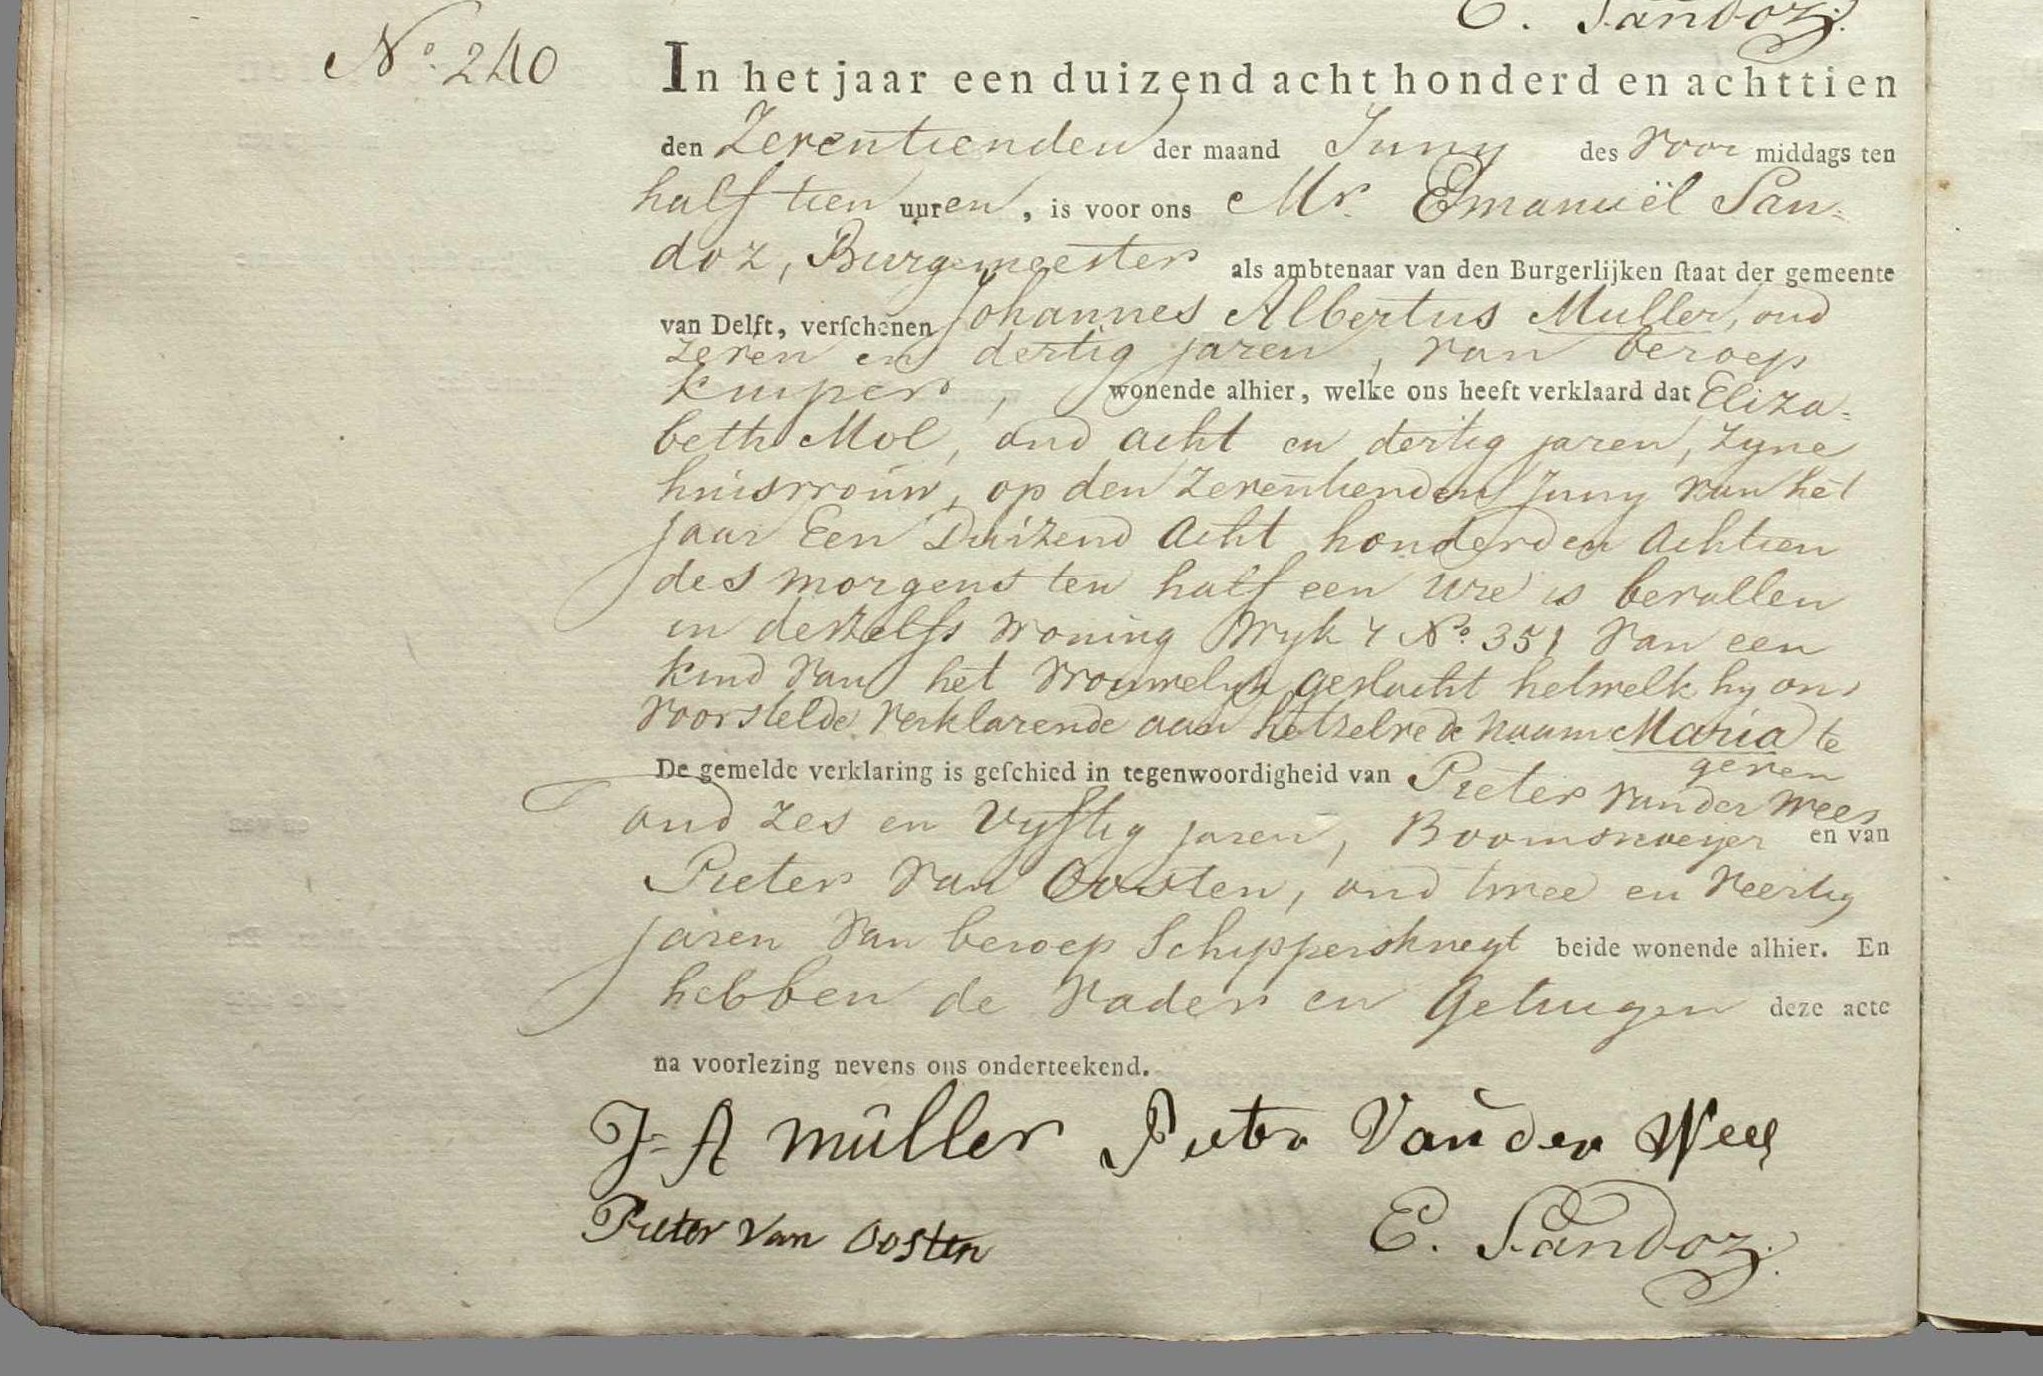 E. Sandoz.
No. 240
In het jaar een duizend acht honderd en achttien
den Zeventienden der maand Juny des voor middags ten
half tien uuren, is voor ons Mr. Emanuël San=
doz, Burgemeester als ambtenaar van den Burgerlijken ſtaat der gemeente
van Delft, verſchenen Johannes Albertus Muller, oud
zeven en dertig jaren, van beroep
kuiper, wonende alhier, welke ons heeft verklaard dat Eliza=
beth Mol, oud acht en dertig jaren, zyne
huisvrouw, op den zeventienden Juny van het
jaar Een Duizend Acht honderd en Achtien
des morgens ten half een ure is bevallen
in deszelfs woning Wyk 4 No. 351 van een
kind van het vrouwelyk geslacht hetwelk hy ons
voorstelde verklarende aan hetzelve de naam Maria te
geven
De gemelde verklaring is geſchied in tegenwoordigheid van Pieter van der Wees
oud zes en vyftig jaren, Boomsnoeyer en van
Pieter van Oosten, oud twee en veertig
jaren van beroep Schippersknegt beide wonende alhier. En
hebben de vader en Getuigen deze acte
na voorlezing nevens ons onderteekend.
J=A müller Pieter Van der Wees
Pieter van Oosten E. Sandoz.